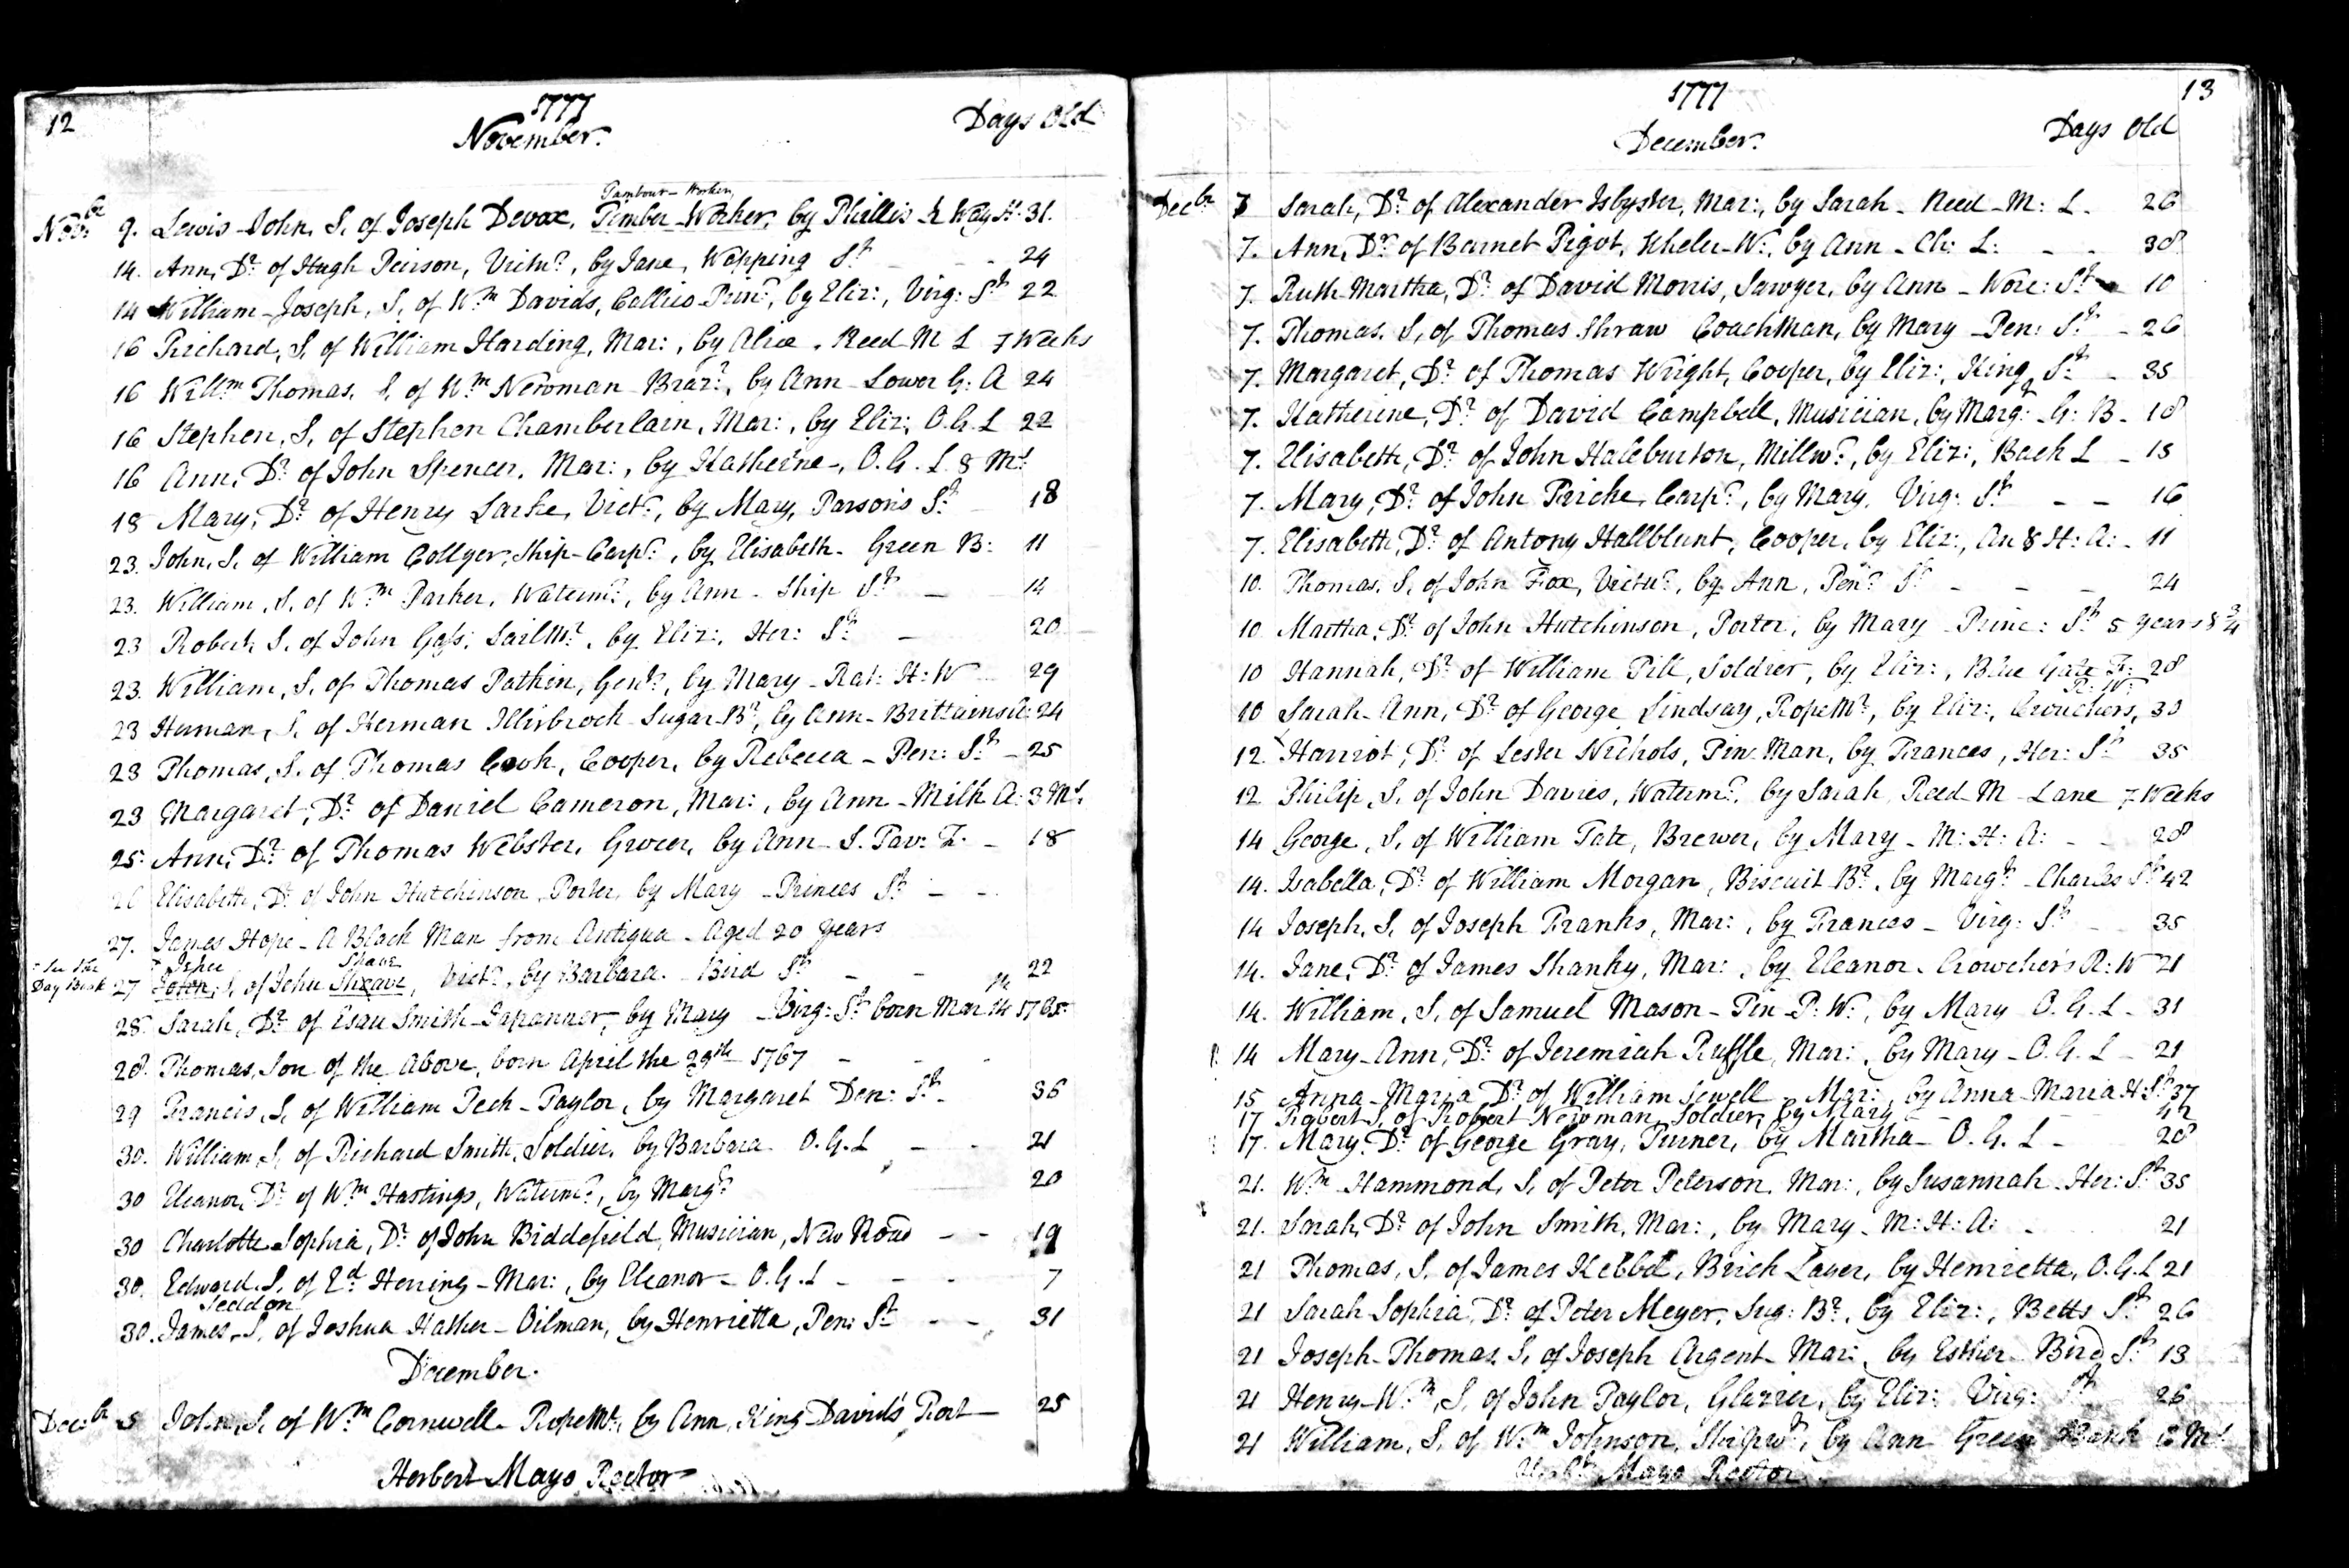 12
1777
November.
Days Old
Tambour-Worker,
Novbr 9. Lewis-John, S. of Joseph Devox, Timber-Worker, by Phillis Way St. 31.
14. Ann, Dr. of Hugh Peirson, Victr., by Jane, Wapping St. - 24
14 William-Joseph, S. of Wm. Davids, Callico-Prinr., by Eliz:, Virg: St. 22
16 Richard, S. of William Harding, Mar:, by Alice, Reed M L 7 Weeks
16 Willm. Thomas, S. of Wm. Newman Braz:r, by Ann - Lower G: A 24
16 Stephen, S. of Stephen Chamberlain, Mar:, by Eliz:, O.G.L 22
16 Ann, Dr. of John Spencer, Mar:, by Katherine -, O.G.L. 8 Ms.
18 Mary, Dr. of Henry Larke, Vict:r, by Mary, Parson's St. 18
23. John, S. of William Collyer, Ship-Carpr., by Elisabeth - Green B: 11
23. William, S. of Wm. Parker, Waterm:n, by Ann - Ship St. - 14
23 Robert, S. of John Gass, Sail Mr., by Eliz:, Her: St. - 20
23. William, S. of Thomas Pathin, Gentn., by Mary - Rat: H: W 29
23 Herman, S. of Herman Illirbrock Sugar-Br., by Ann - Brittains A: 24
23 Thomas, S. of Thomas Cook, Cooper, by Rebecca - Pen: St. - 25
23 Margaret, Dr. of Daniel Cameron, Mar:, by Ann - Milk A: 3 Ms.
25. Ann, Dr. of Thomas Webster, Grocer, by Ann - S. Pav: F. - 18
26 Elisabeth, Dr. of John Hutchinson, Porter, by Mary - Princes St. - -
27. James Hope - A Black Man from Antigua - Aged 20 Years
See the Day Book
Shave
27 John, S. of John Shrave, Vict:r, by Barbara - Bird St. - - 22
28. Sarah, Dr. of Esau Smith - Japanner, by Mary - Virg: St. born Mar 14th 1765.
28. Thomas, Son of the Above, born April the 29th 1767 - - -
29 Francis, S. of William Peck - Taylor, by Margaret Den: St. - 36
30. William, S. of Richard Smith, Soldier, by Barbara - O.G.L - - 21
30 Eleanor, Dr. of Wm. Hastings, Waterm:n, by Margt. 20
30 Charlotte Sophia, Dr. of John Biddefield, Musician, New Road - - 19
30. Edward, S. of Ed. Herring - Mar:, by Eleanor - O.G.L - - - 7
Seddon
30. James, S. of Joshua Hather - Oilman, by Henrietta, Pen: St. - - 31
December.
Decbr 5 John, S. of Wm. Cornwell - Rope Mr., by Ann, King David's Fort - 25
Herbert Mayo Rector
1777
13
December.
Days Old
Decbr 7 Sarah, Dr. of Alexander Isbyster, Mar:, by Sarah - Reed - M: L - 26
7. Ann, Dr. of Barnet Pigot, Wheler-W:, by Ann - Ch: L: - - 30
7. Ruth-Martha, Dr. of David Morris, Sawyer, by Ann - Wore: St. 10
7. Thomas, S. of Thomas Shraw Coachman, by Mary - Pen: St. - 26
7. Margaret, Dr. of Thomas Wright, Cooper, by Eliz:, King St. - 35
7. Katherine, Dr. of David Campbell, Musician, by Margt. - G: B - 18
7. Elisabeth, Dr. of John Haleburton, Millwt., by Eliz:, Back L - 15
7. Mary, Dr. of John Pricke, Carpr., by Mary, Virg: St. - - 16
7. Elisabeth, Dr. of Antony Hallblunt, Cooper, by Eliz:, An & H: A: - 11
10. Thomas, S. of John Fox, Victr., by Ann, Pen: St. - - - 24
10. Martha, Dr. of John Hutchinson, Porter, by Mary - Princ: St. 5 years & 3/4
10 Hannah, Dr. of William Pill, Soldier, by Eliz:, Blue Gate F: 28
R: W:
10 Sarah-Ann, Dr. of George Lindsay, Rope Mr., by Eliz:, Crouchers, 30
12. Harriot, Dr. of Lester Nichols, Pin-Man, by Frances, Her: St. 35
12 Philip, S. of John Davies, Waterm:n, by Sarah, Reed-M-Lane 7 Weeks
14 George, S. of William Tate, Brewer, by Mary - M: H: A: - - 28
14. Isabella, Dr. of William Morgan, Biscuit-Br., by Margt. - Charles St. 42
14 Joseph, S. of Joseph Franks, Mar:, by Frances - Virg: St. - 35
14. Jane, Dr. of James Shanky, Mar:, by Eleanor - Crowcher's R: W 21
14. William, S. of Samuel Mason - Pin-P: W:, by Mary - O.G.L - 31
14 Mary-Ann, Dr. of Jeremiah Ruffle, Mar:, by Mary - O.G.L - 21
15 Anna-Maria, Dr. of William Sewell - Mar:, by Anna-Maria H St. 37
17 Robert, S. of Robert Newman, Soldier, by Mary - - 42
17. Mary, Dr. of George Gray, Turner, by Martha - O.G.L - 20
21. Wm. Hammond, S. of Peter Peterson, Mar:, by Susannah - Her: St. 35
21. Sarah, Dr. of John Smith, Mar:, by Mary - M: H: A: - 21
21 Thomas, S. of James Kebbel, Brick Layer, by Henrietta, O.G.L 21
21 Sarah Sophia, Dr. of Peter Meyer, Sug: Br., by Eliz:, Betts St. 26
21 Joseph-Thomas, S. of Joseph Argent - Mar:, by Esther - Bird St. 13
21 Henry-Wm., S. of John Taylor, Glazier, by Eliz: Virg: St. 26
21 William, S. of Wm. Johnson, Shipwt., by Ann - Green Bank Ms.
Herbt. Mayo Rector